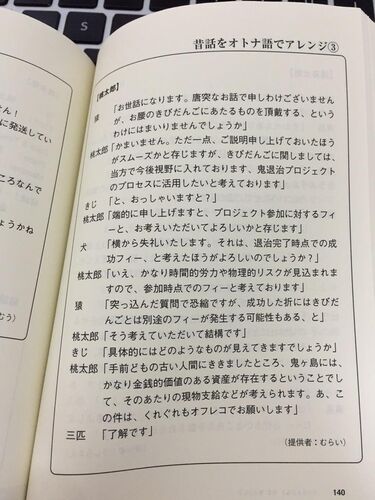 昔話をオトナ語でアレンジ③
【桃太郎】
猿「お世話になります。唐突なお話で申しわけございません
が、お腰のきびだんごにあたるものを頂戴する、という
わけにはまいりませんでしょうか」
桃太郎「かまいません。ただ一点、ご説明申し上げておいたほう
がスムーズかと存じますが、きびだんごに関しましては、
当方で今後視野に入れております、鬼退治プロジェクト
のプロセスに活用したいと考えております」
きじ「と、おっしゃいますと?」
桃太郎「端的に申し上げますと、プロジェクト参加に対するフィ
ーと、お考えいただいてよろしいかと存じます」
犬「横から失礼いたします。それは、退治完了時点での成
功フィー、と考えたほうがよろしいのでしょうか?」
桃太郎「いえ、かなり時間的労力や物理的リスクが見込まれま
すので、参加時点でのフィーと考えております」
猿「突っ込んだ質問で恐縮ですが、成功した折にはきびだ
んごとは別途のフィーが発生する可能性もある、と」
桃太郎「そう考えていただいて結構です」
きじ「具体的にはどのようなものが見えてきますでしょうか」
桃太郎「手前どもの古い人間にききましたところ、鬼ヶ島には、
かなり金銭的価値のある資産が存在するということでし
て、そのあたりの現物支給などが考えられます。あ、こ
の件は、くれぐれもオフレコでお願いします」
三匹「了解です」
(提供者:むらい)
140
ん!
に発送してい
ころなんで
ょうかね
むう)